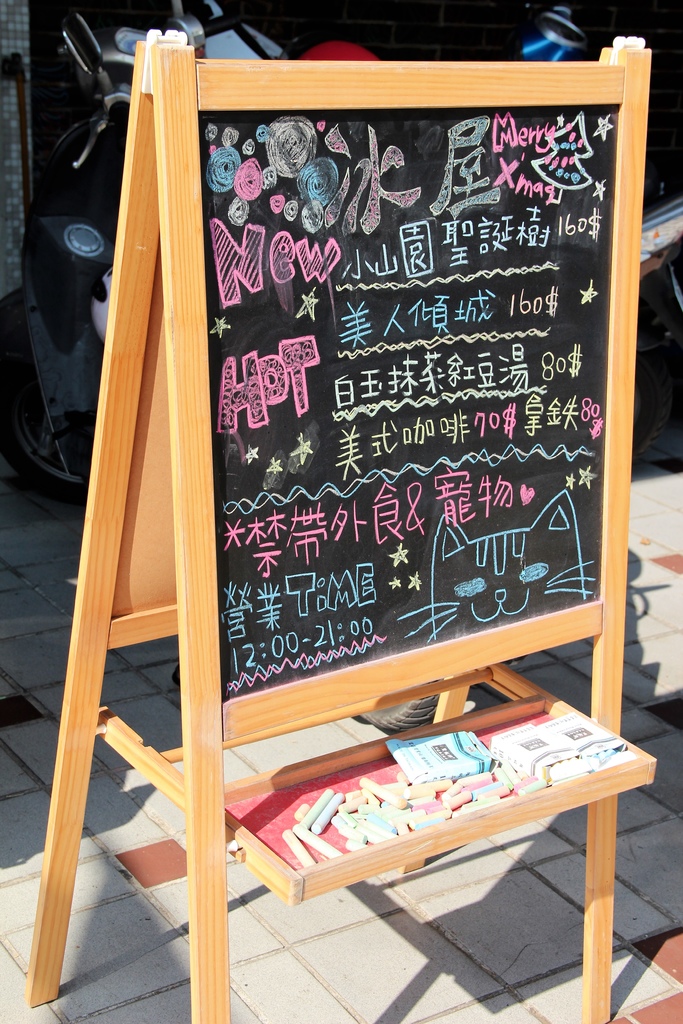 冰屋 Merry X'mas
New 小山園聖誕樹 160$
美人傾城 160$
HOT 白玉抹茶紅豆湯 80$
美式咖啡 70$ 拿鐵 80$
*禁帶外食&寵物
營業TiME
12:00-21:00